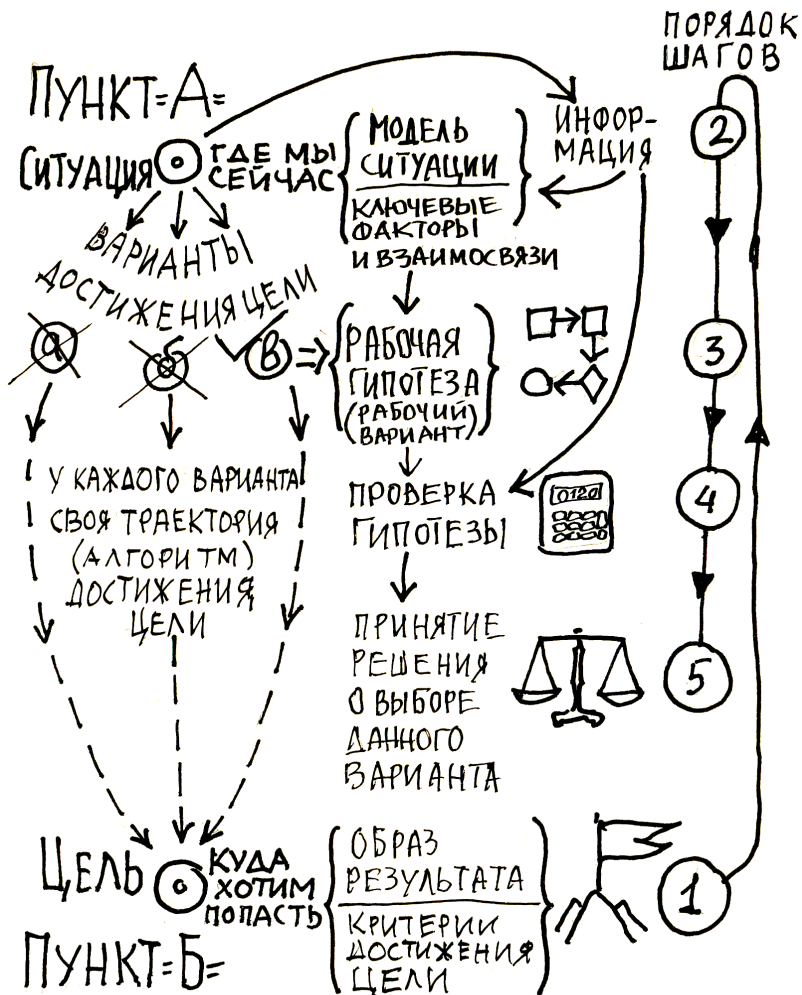 ПОРЯДОК
ШАГОВ
ПУНКТ=А=
СИТУАЦИЯ
ГДЕ МЫ
СЕЙЧАС
МОДЕЛЬ
СИТУАЦИИ
КЛЮЧЕВЫЕ
ФАКТОРЫ
И ВЗАИМОСВЯЗИ
ИНФОР-
МАЦИЯ
2
ВАРИАНТЫ
ДОСТИЖЕНИЯ ЦЕЛИ
а
б
в
РАБОЧАЯ
ГИПОТЕЗА
(РАБОЧИЙ
ВАРИАНТ)
3
У КАЖДОГО ВАРИАНТА
СВОЯ ТРАЕКТОРИЯ
(АЛГОРИТМ)
ДОСТИЖЕНИЯ
ЦЕЛИ
ПРОВЕРКА
ГИПОТЕЗЫ
0120
4
ПРИНЯТИЕ
РЕШЕНИЯ
О ВЫБОРЕ
ДАННОГО
ВАРИАНТА
5
ЦЕЛЬ
КУДА
ХОТИМ
ПОПАСТЬ
ПУНКТ=Б=
ОБРАЗ
РЕЗУЛЬТАТА
КРИТЕРИИ
ДОСТИЖЕНИЯ
ЦЕЛИ
1